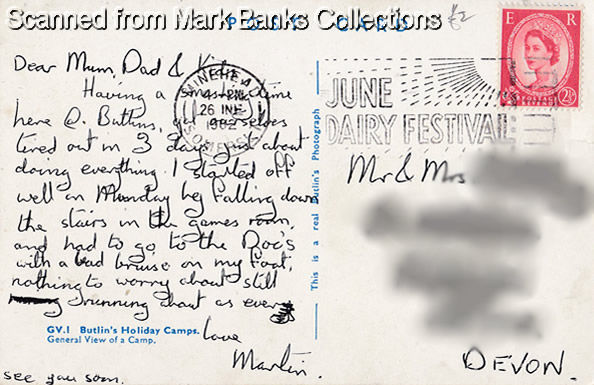 Scanned from Mark Banks Collections
POST CARD
£2
E R
2½D
MINEHEAD
26 JNE
1962
SOMERSET
JUNE
DAIRY FESTIVAL
Dear Mum, Dad &
Having a time
here @ Butlins, got ourselves
tired out in 3 days just about
doing everything. I started off
well on Munday by falling down
the stairs in the games room,
and had to go to the Doc's
with a bad bruise on my foot,
nothing to worry about still
running about as ever
love
Martin.
see you soon.
GV.1 Butlin's Holiday Camps.
General View of a Camp.
This is a real Butlin's Photograph
Mr & Mrs
DEVON.